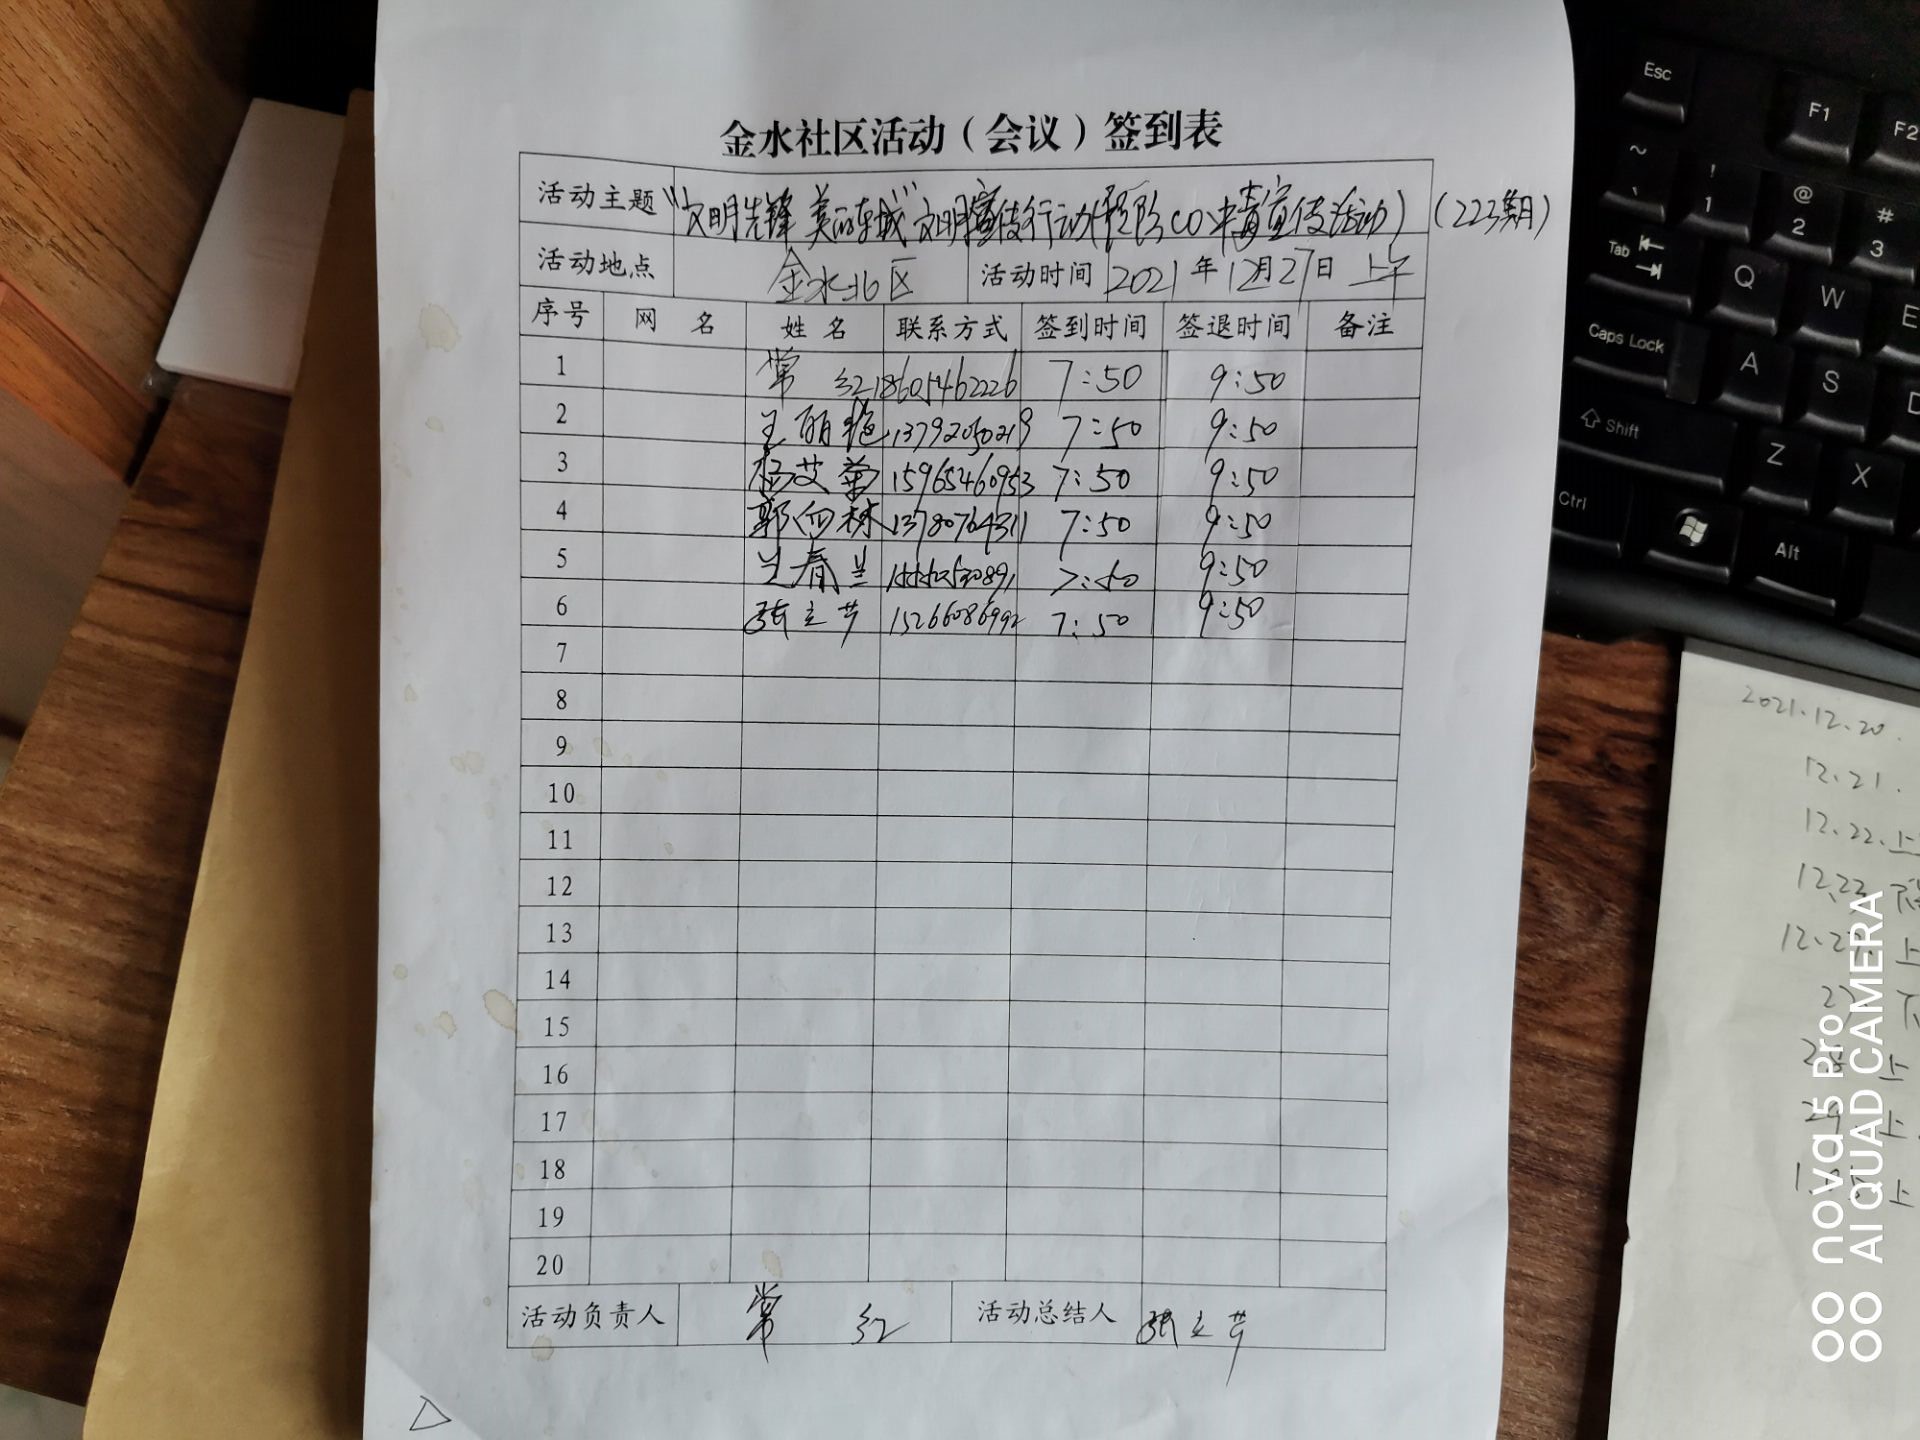 金水社区活动（会议）签到表
活动主题 "文明先锋 美丽东城"文明宣传行动(预防CO中毒宣传活动) (223期)
活动地点 金水北区 活动时间 2021年12月27日 上午
序号 网 名 姓 名 联系方式 签到时间 签退时间 备注
1 常 红 18605462226 7:50 9:50
2 王丽艳 13792050219 7:50 9:50
3 杨艾菊 15965460953 7:50 9:50
4 郭向林 13780764311 7:50 9:50
5 兰春兰 7:50 9:50
6 张立芳 15266086992 7:50 9:50
7
8
9
10
11
12
13
14
15
16
17
18
19
20
活动负责人 常 红 活动总结人 张立芳
Esc F1 F2
~ ! 1 @ 2 # 3
Tab Q W E
Caps Lock A S D
Shift Z X
Ctrl Alt
2021.12.20.
12.21.
12.22.上
12.23.
12.27. 上
27. 下
28. 上
29. 上
上
nova 5 Pro
AI QUAD CAMERA